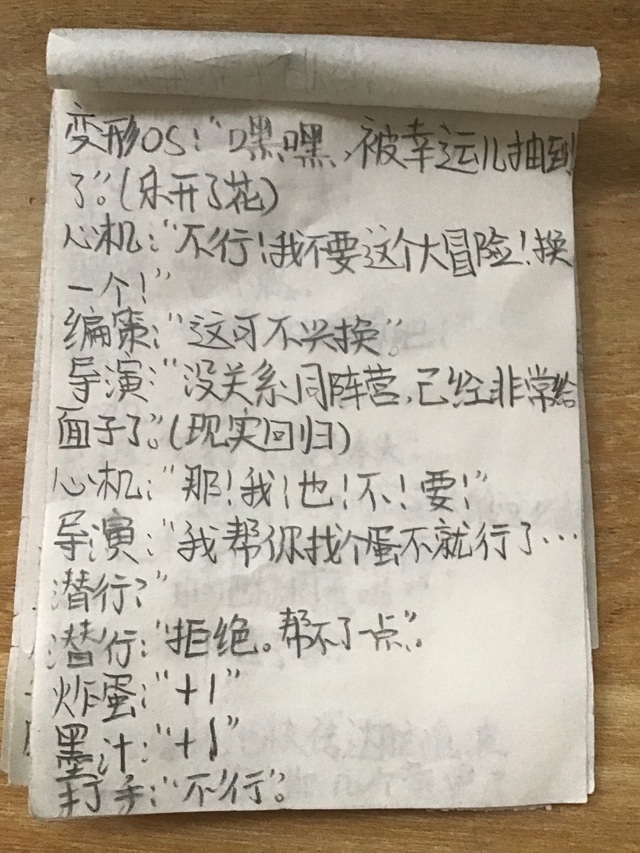 变形OS：“嘿嘿，被幸运儿抽到
了”。(乐开了花)
心机：“不行！我不要这个大冒险！换
一个！”
编策：“这可不兴换”。
导演：“没关系，同阵营，已经非常给
面子了”。(现实回归)
心机：“那！我！也！不！要！”
导演：“我帮你找个蛋不就行了…
潜行？”
潜行：“拒绝。帮不了一点”。
炸蛋：“+1”
墨汁：“+1”
打手：“不行”。